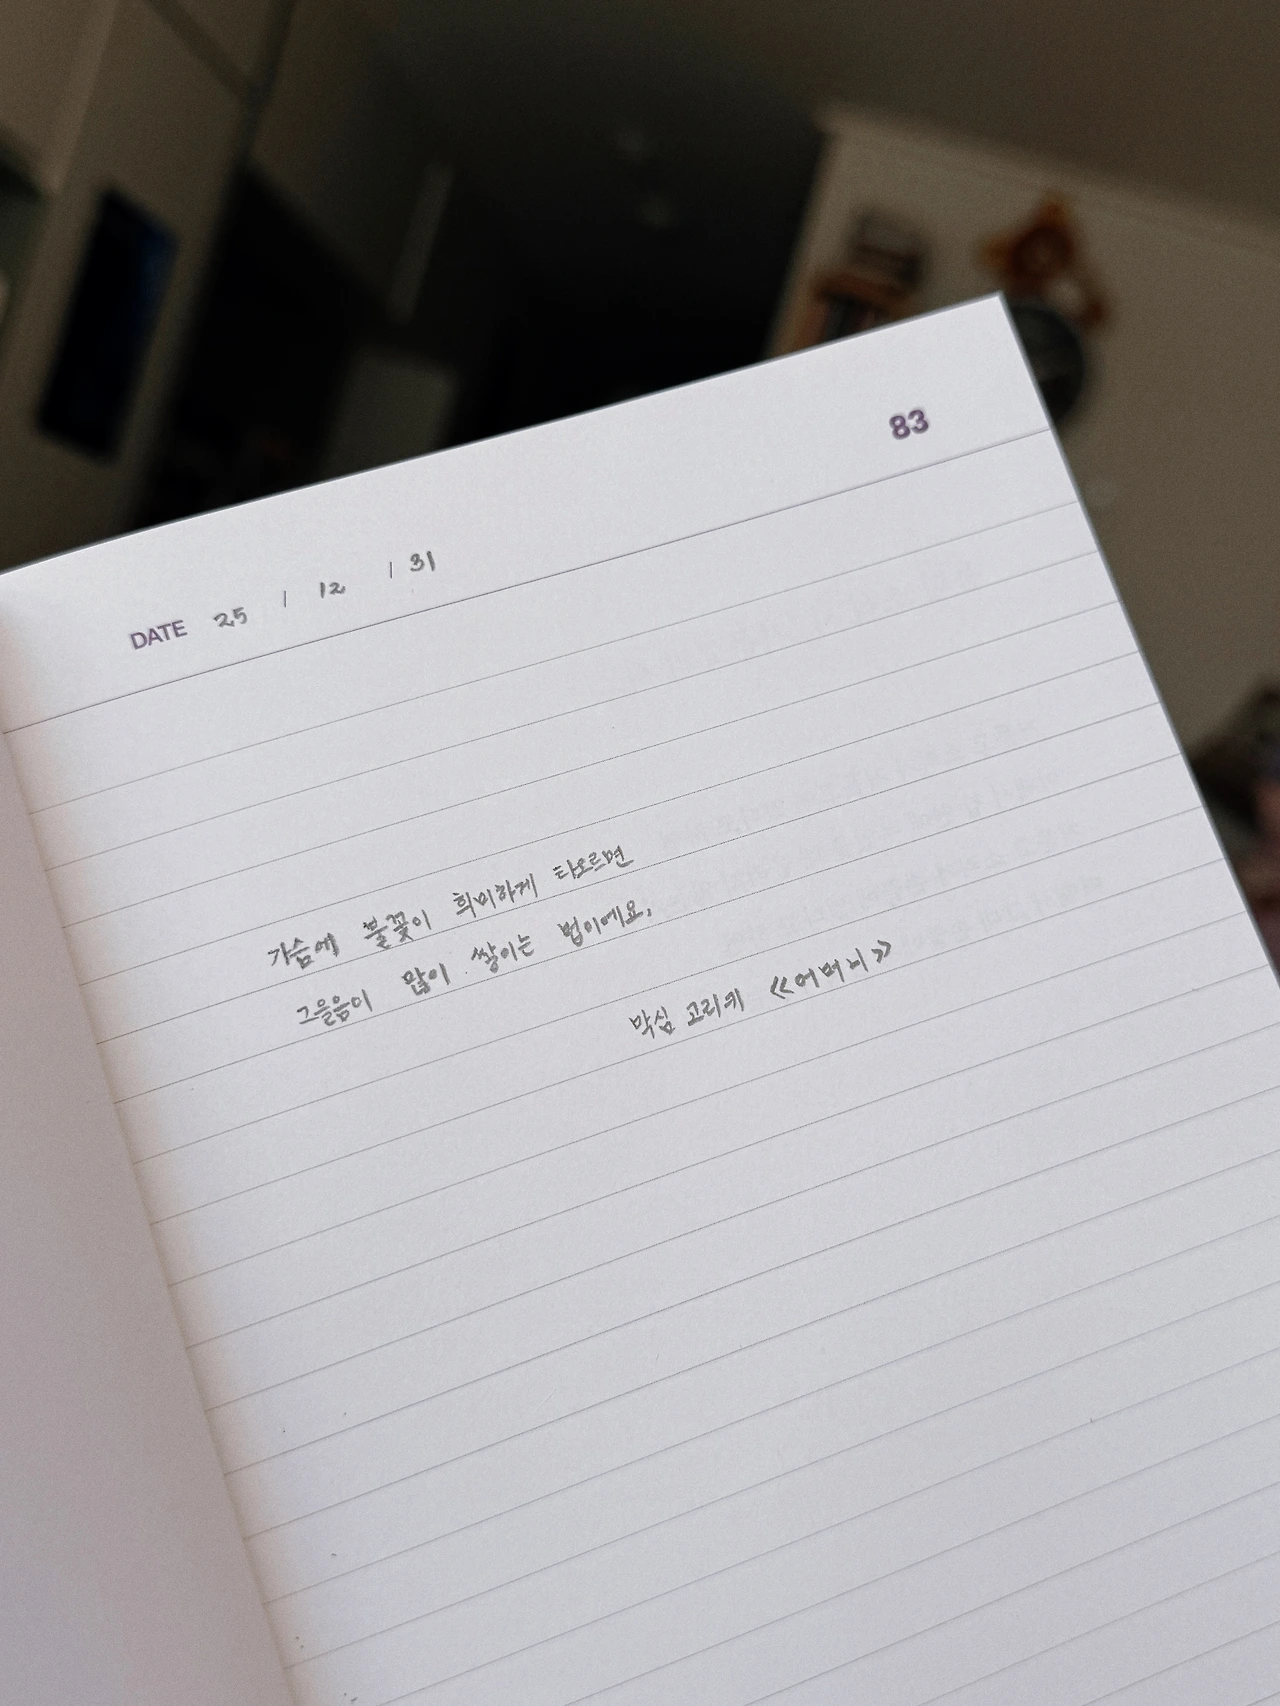 83
DATE 25 / 12 / 31
가슴에 불꽃이 희미하게 타오르면
그을음이 많이 쌓이는 법이에요,
막심 고리키 《어머니》